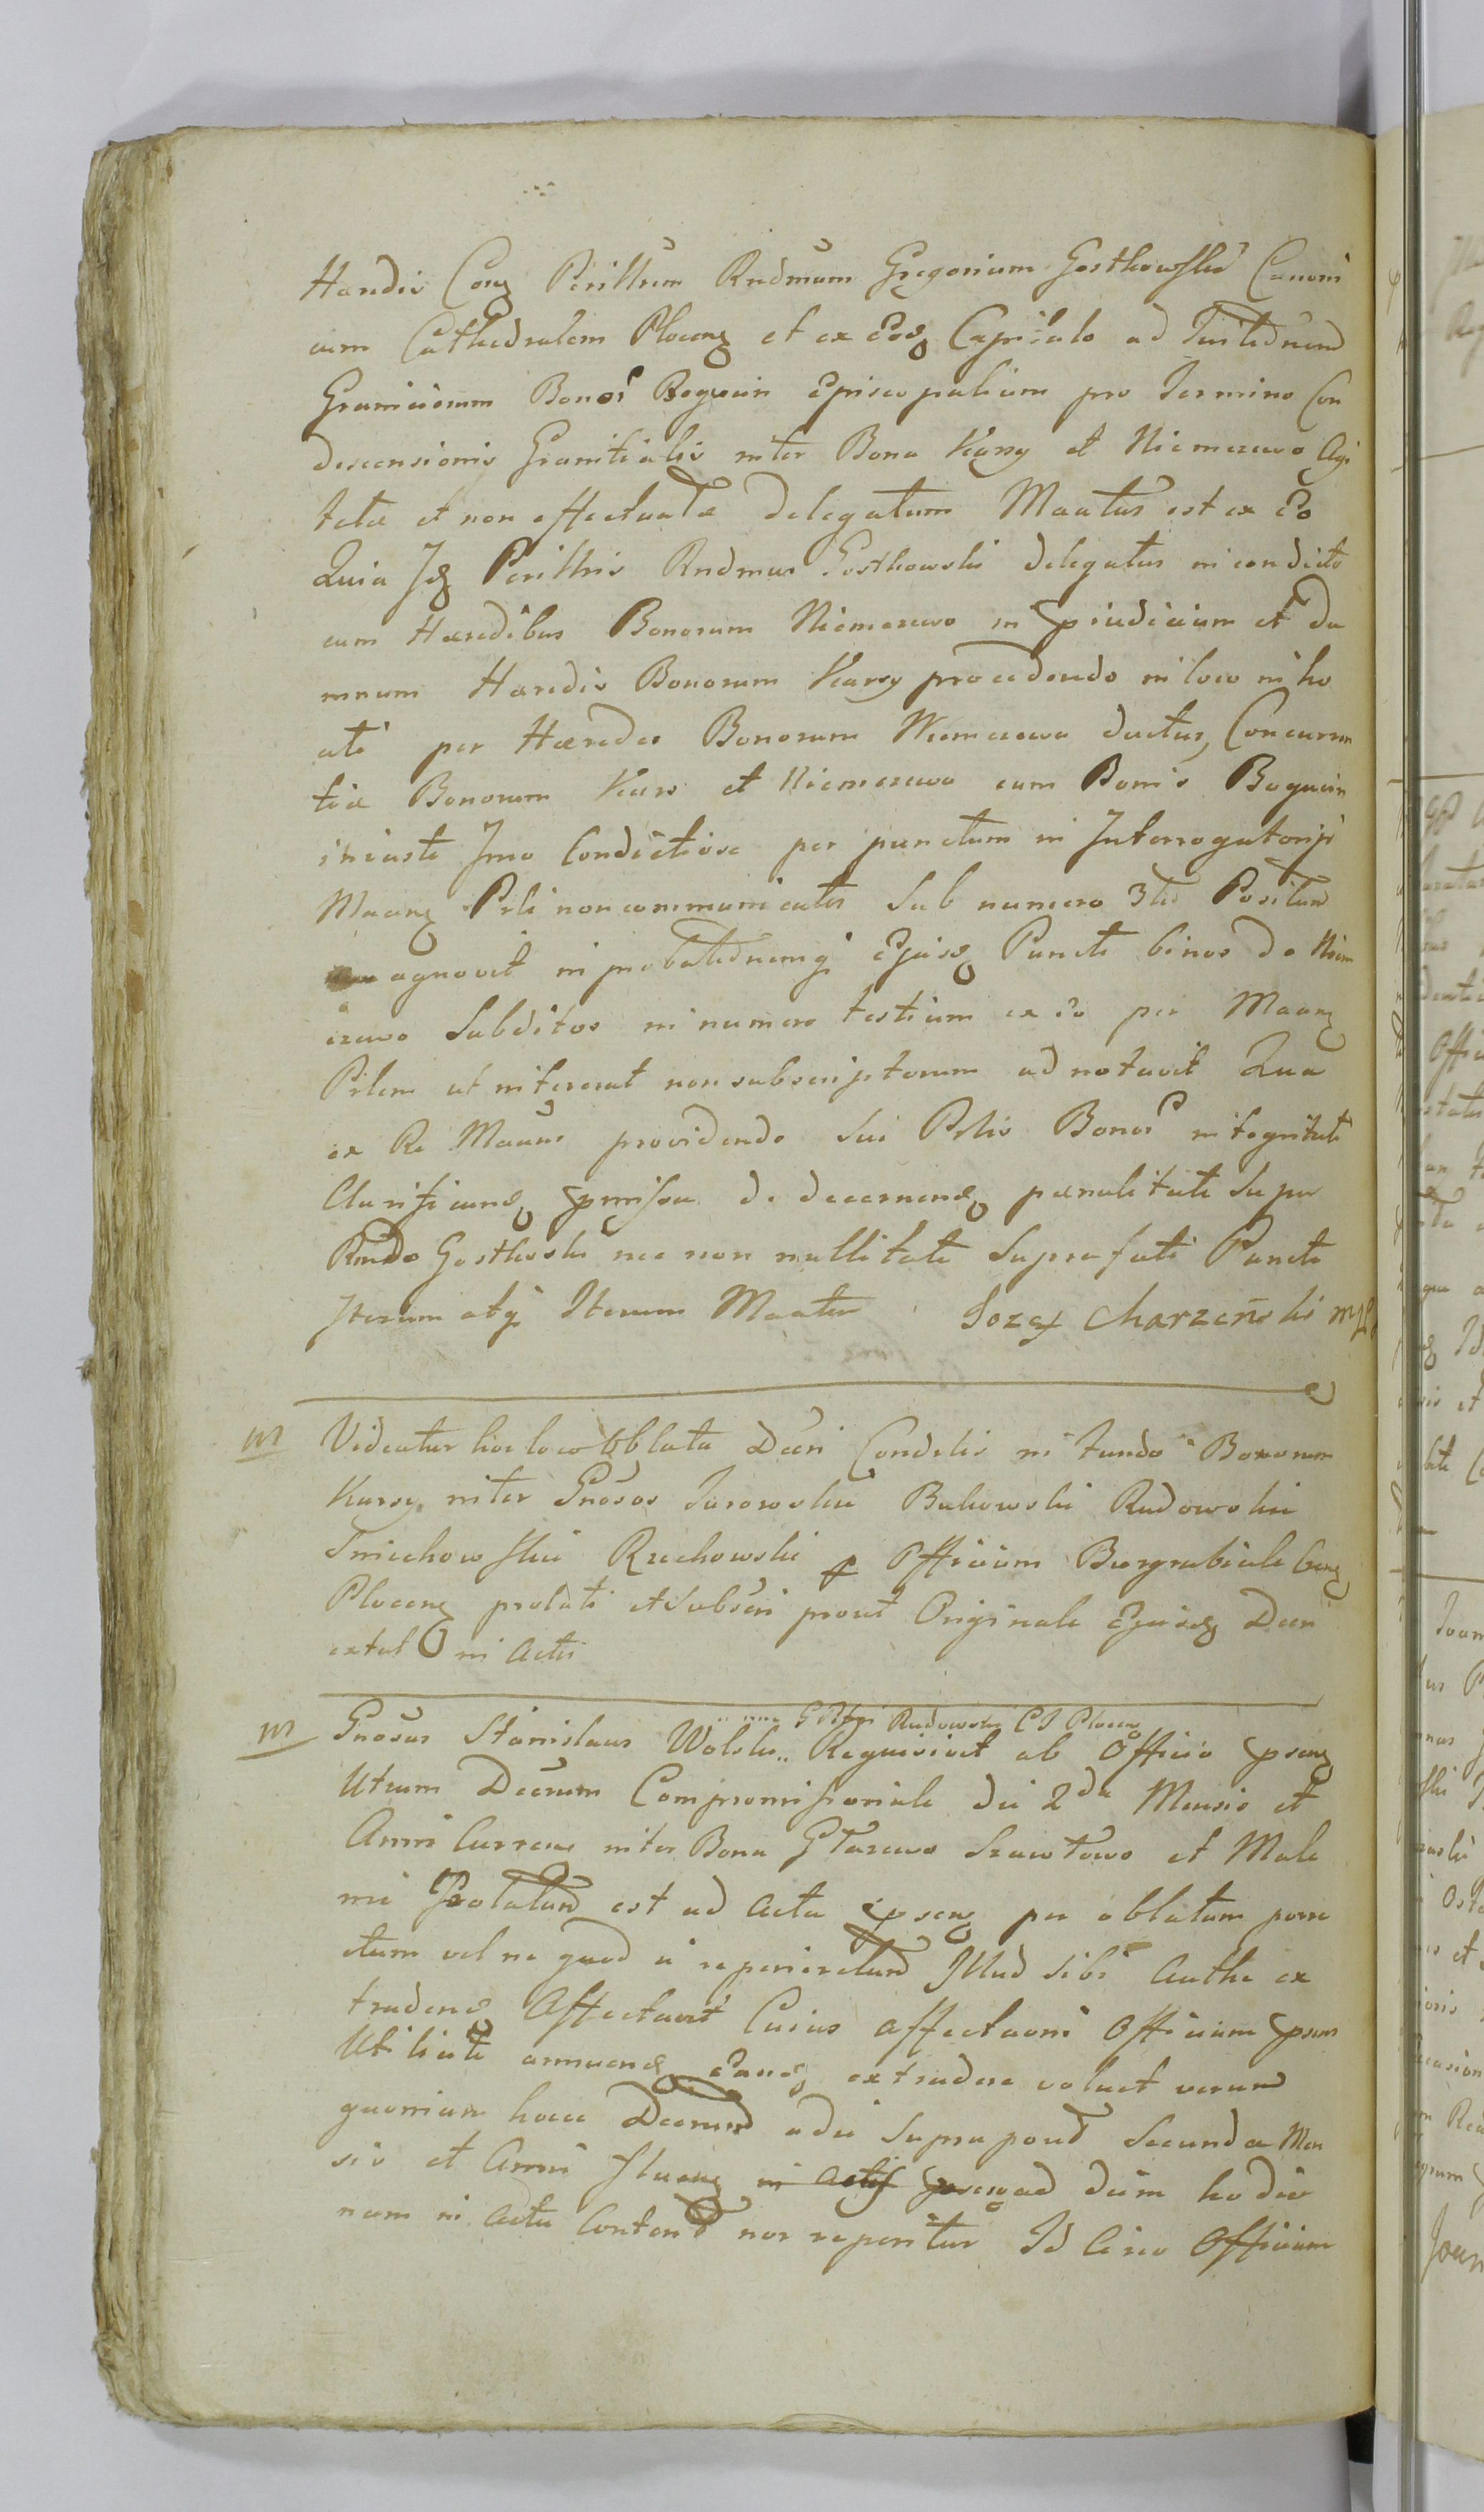 Hæredis Conq Perillrem Rndmum Gregorium Gostkowski Canoni
cum Cathedralem Plocenq et ex Eodq Capitulo ad Tuitednend
Graniciorum Bonor Bogucin Episcopalium pro Termino Con
descensionis Granitialis inter Bona Karsy et Niemczewo Agi
tatæ et non effectuatæ delegatum Maatur est ex Eo
Quia Jdq Perillris Rndmus Gostkowski delegatus in condicto
cum Hæredibus Bonorum Niemczewo in præiudicium et da
mnum Hæredis Bonorum Karsy procedendo in loco incho
ati per Hæredes Bonorum Niemczewo ductus, Concurren
tiæ Bonorum Kars et Niemczewo cum Bonis Bogucin
iniuste Imo Condictiose per punctum in Interrogatorijs
Maanq Prli non communicatis Sub numero 3tio Positum
agnovit in probatednemq Ejusdq Puncti binos de Niem
czewo Subditos in numero testium ex eo per Maanq
Prlem ut intererat non subscriptorum adnotavit Qua
ex Re Maans providendo Sui Prlis Bonor integritati
Clarificandq præmissa de decernendq pænalitate Super
Rndo Gostkoski nec non nullitate Suprafati Puncti
Iterum atq Iterum Maatur Jozef Charzeński mpp
m Videatur hoc loco Oblata Decri Condslis in fundo Bonorum
Karsy inter Gnosos Jurowskie Bukowski Rudowskie
Smiechowskie Rzechowski p Officium Burgrabiale Cenq
Plocenq prolati et Subscri prout Originale Ejusdq Decri
extat in Actis
G Rfgi Rudowski C S Plocen
m Gnosus Stanislaus Wolski Requisivit ab Officio psenq
Utrum Decrum Compromissoriale die 2da Mensis et
Anni Currenq inter Bona Głazewo Szawłowo et Male
nie Prolatum est ad Acta psenq per oblatam porre
ctum vel ne quod si reperiretur Illud sibi Authe ex
tradendq Affectavit Cuius affectaoni Officium psens
Utiliati annuendq Eandq extradere voluit verum
quoniam hocce Decrum a die Supra poud Secunda Men
sis et Anni fluenq in Actis psenq ad diem hodie
rnam in Actis Content non reperitur Id Circo Officium